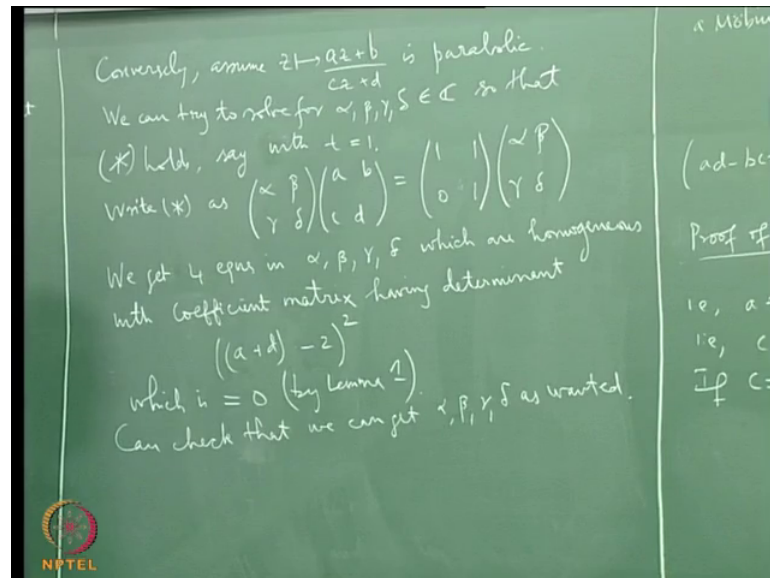 Conversely, assume z ↦ (az+b)/(cz+d) is parabolic.
We can try to solve for α, β, γ, δ ∈ ℂ so that
(*) holds, say with t = 1.
Write (*) as (α β; γ δ)(a b; c d) = (1 1; 0 1)(α β; γ δ)
We get 4 eqns in α, β, γ, δ which are homogeneous
with coefficient matrix having determinant
((a+d) - 2)²
which is = 0 (by Lemma 1).
Can check that we can get α, β, γ, δ as wanted.
a Möbiu
(ad-bc
Proof of
i.e, a
i.e, c
If c=
t
NPTEL